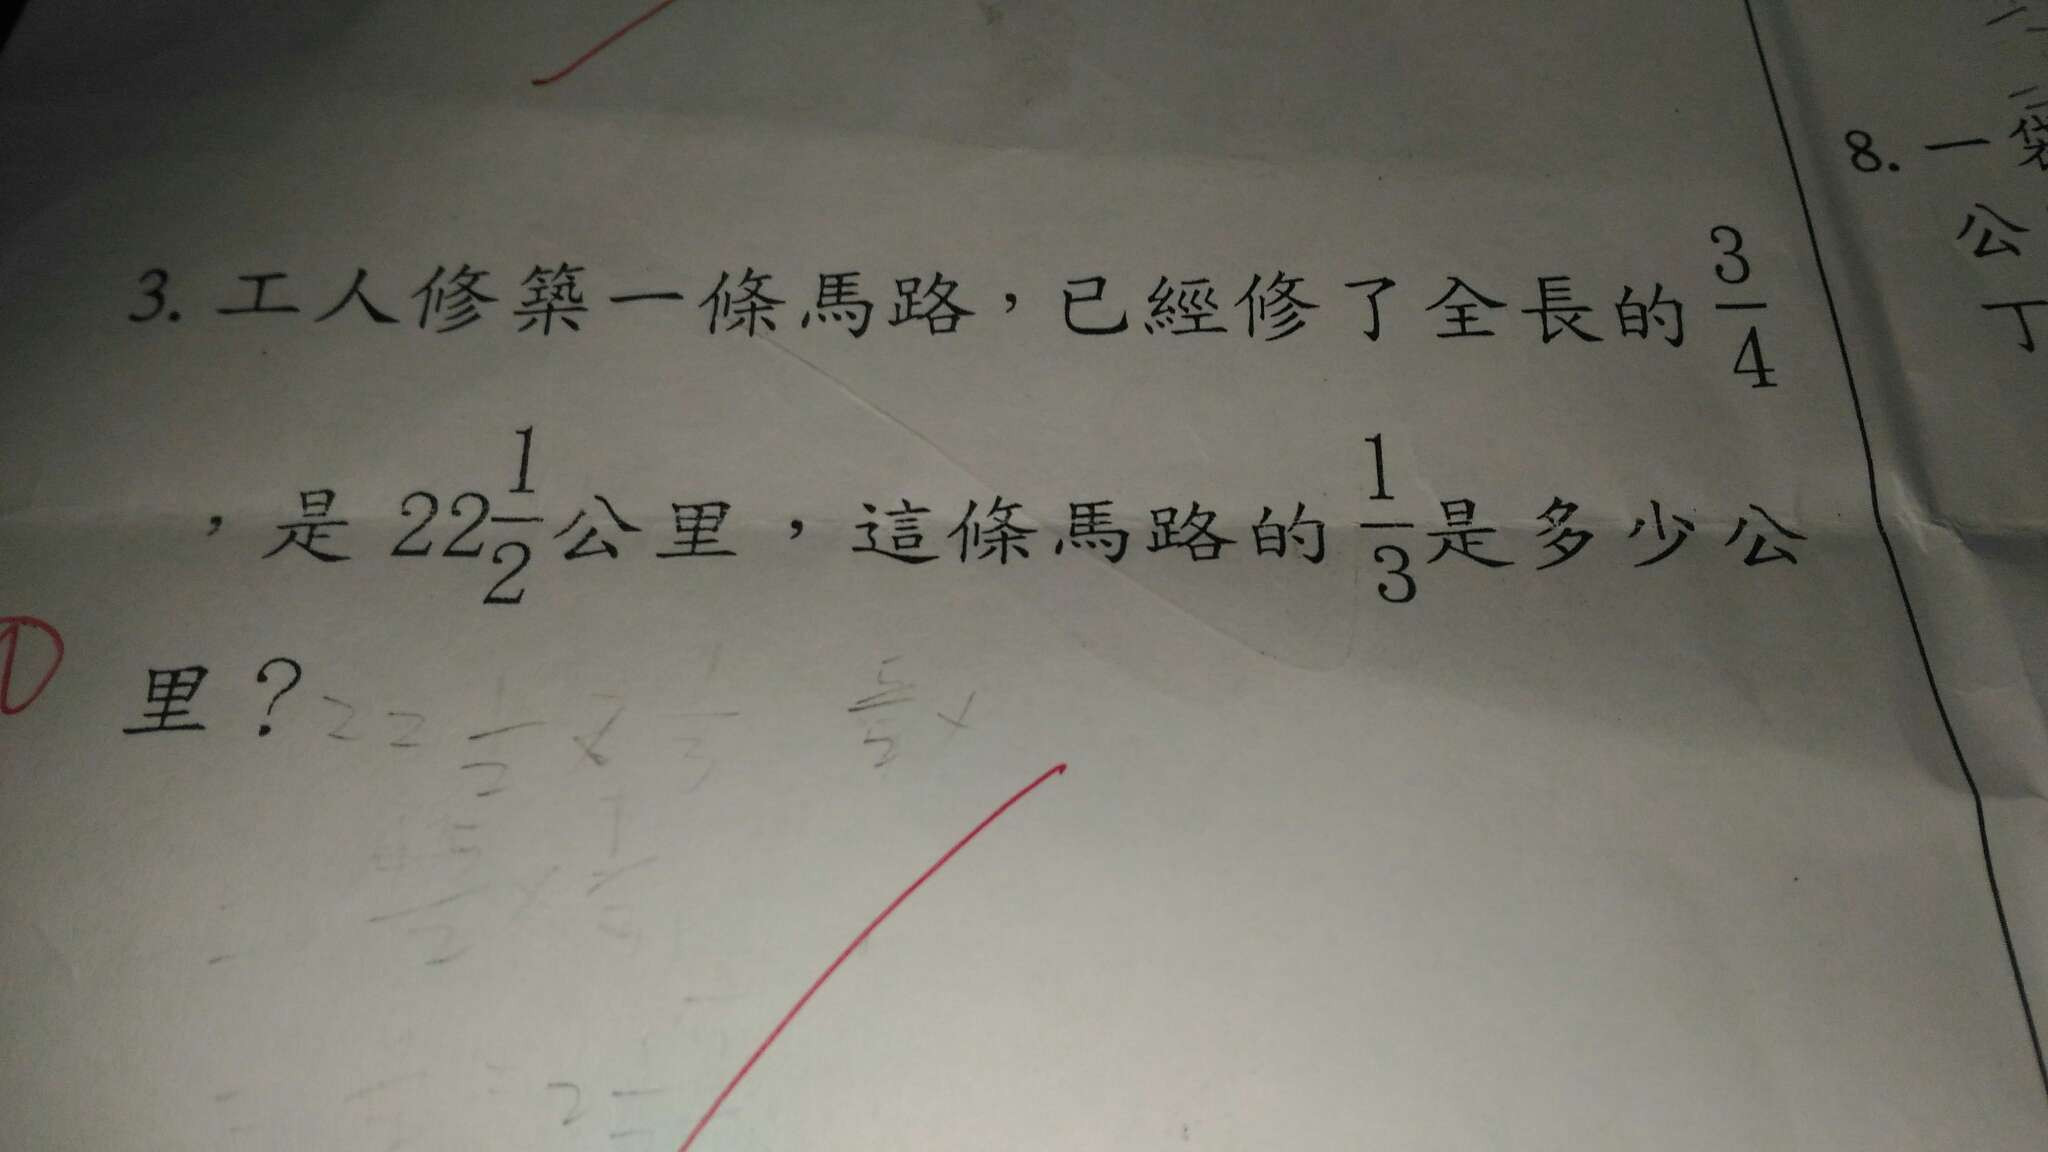 3. 工人修築一條馬路，已經修了全長的 3/4
，是 22 1/2 公里，這條馬路的 1/3 是多少公
里？22 1/2 × 1/3
8. 一袋
公
丁